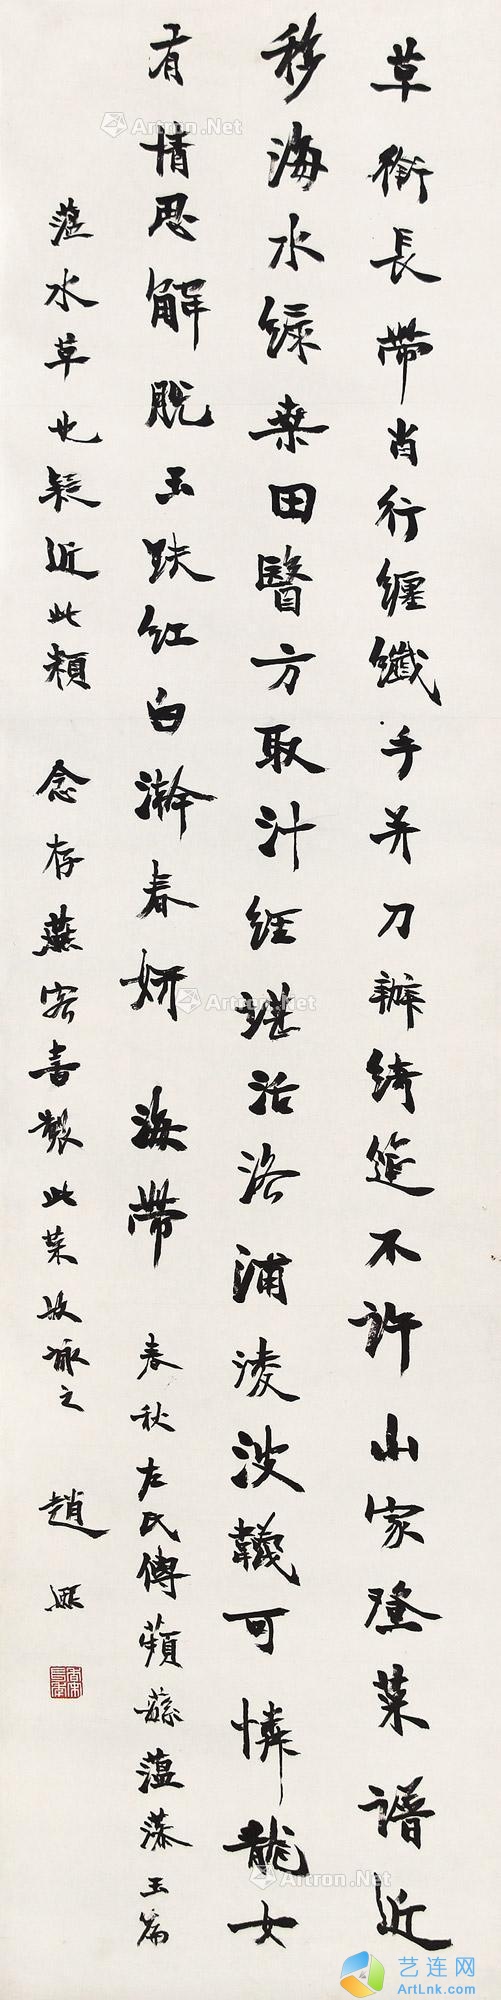 草衘長帶肖行纏纖手并刀辦綺筵不許山家登菜譜近
移海水緑桑田醫方取汁經堪活洛浦淩波韈可憐龍女
有情思解脱玉趺紅白澣春妍 海帶 春秋左氏傳蘋蘩薀藻玉篇
薀水草也疑近此類 念存燕客善製此菜故詠之 趙熙
Artron.Net
Artron.Net
Artron.Net
Artron.Net
艺连网
ArtLnk.com